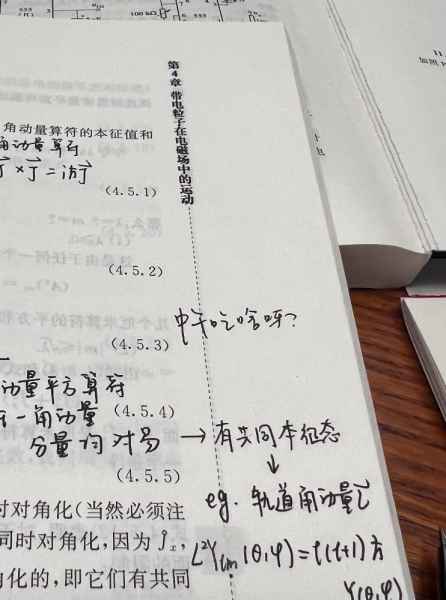 100 kΩ
第4章 带电粒子在电磁场中的运动
角动量算符的本征值和
角动量算符
J⃗ × J⃗ = iħJ⃗
(4.5.1)
(4.5.2)
中午吃啥呀?
(4.5.3)
动量平方算符
一角动量 (4.5.4)
分量均对易 → 有共同本征态
↓
(4.5.5)
eg. 轨道角动量L⃗
时对角化(当然必须注
同时对角化,因为 Ĵx,
L²Ylm(θ,φ) = l(l+1)ħ
角化的,即它们有共同
Y(θ,φ)